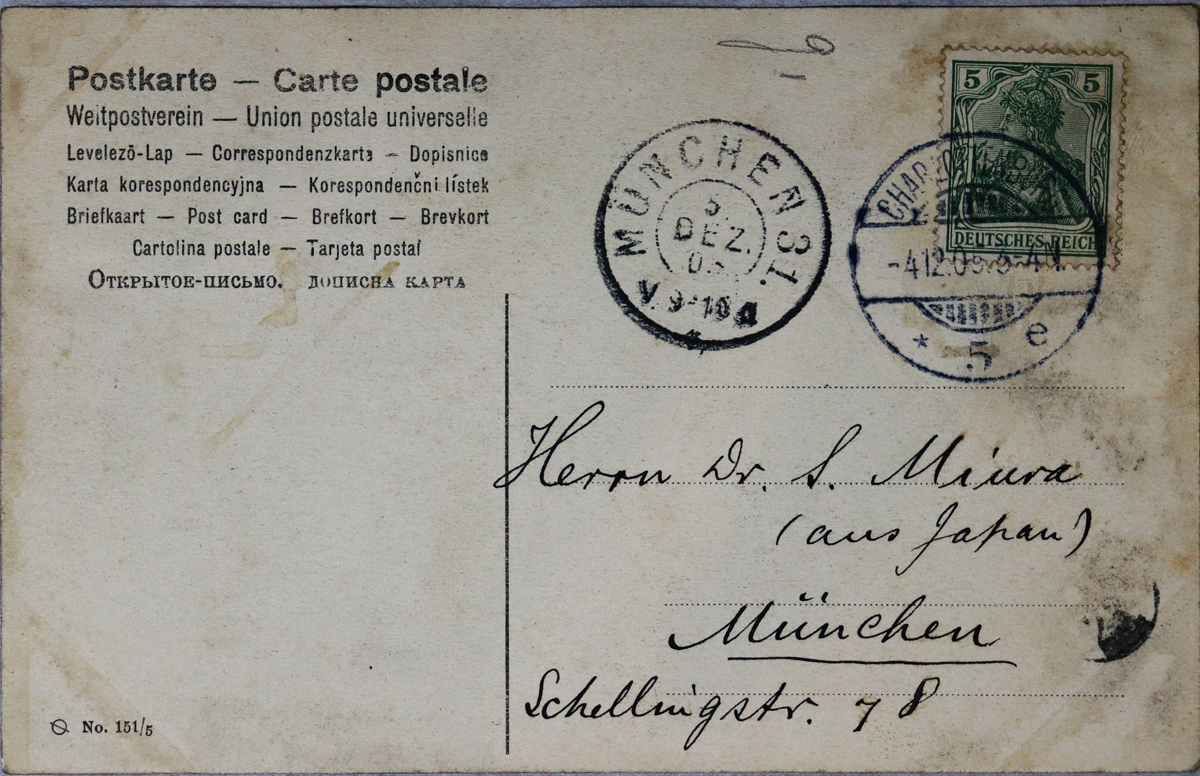 Postkarte — Carte postale
Weltpostverein — Union postale universelle
Levelező-Lap — Correspondenzkarte — Dopisnice
Karta korespondencyjna — Korespondenční lístek
Briefkaart — Post card — Brefkort — Brevkort
Cartolina postale — Tarjeta postal
Открытое-письмо. дописна карта
MÜNCHEN 31.
DEZ.
V. 9-10
5 5
DEUTSCHES REICH
-4.12.05.
* 5 e
Herrn Dr. S. Miura
(aus Japan)
München
Schellingstr. 78
No. 151/5